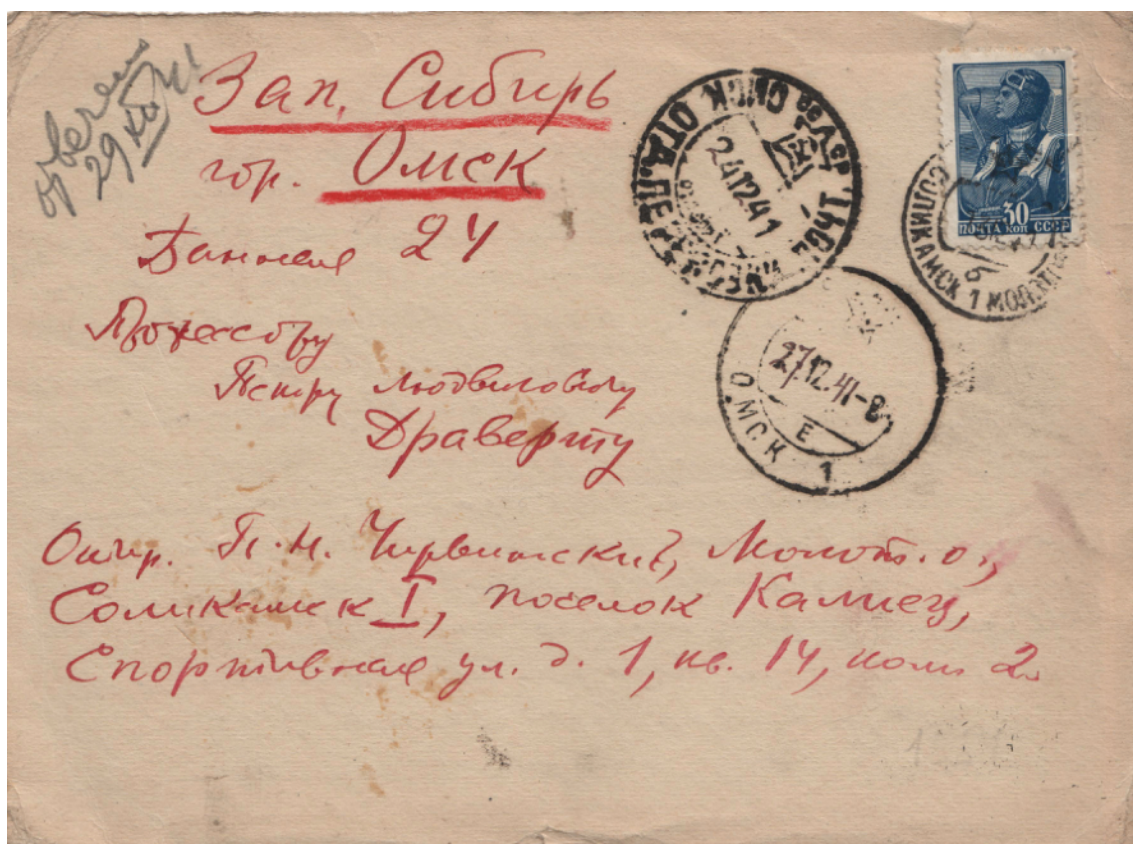 отвечено
29 XII 41
Зап. Сибирь
гор. Омск
Банная 24
Профессору
Петру Людвиговичу
Драверту
Отпр. П. Н. Чирвинский, Молот. о.,
Соликамск I, поселок Калиец,
Спортивная ул. д. 1, кв. 14, комн 2.
ОМСК ОТД. ПЕР
241241
30
ПОЧТА КОП СССР
СОЛИКАМСК 1 МОЛОТ
Б
27.12.41-8
Е
ОМСК 1